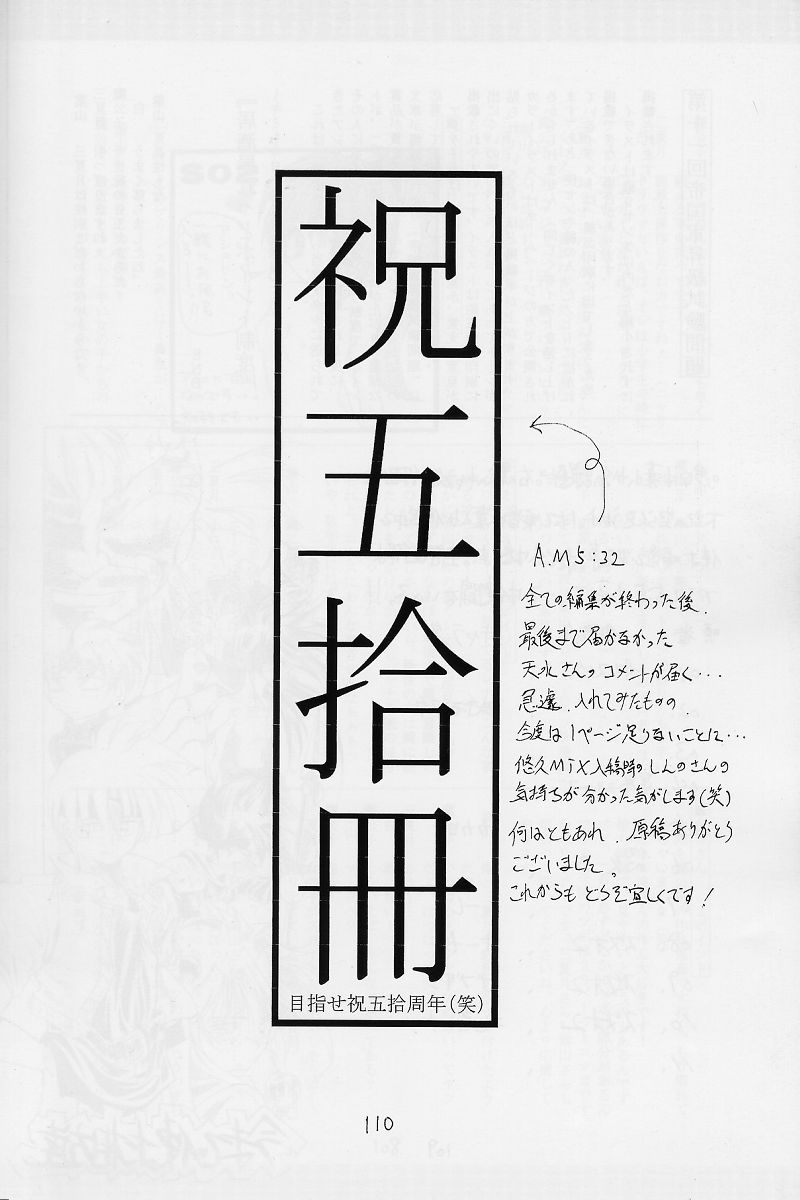 祝五拾冊
目指せ祝五拾周年(笑)
A.M 5:32
全ての編集が終わった後、
最後まで届かなかった
天水さんのコメントが届く・・・
急遽、入れてみたものの、
今度は1ページ足りないことに・・・
悠久MIX入稿時のしんのさんの
気持ちが分かった気がします(笑)
何はともあれ、原稿ありがとう
ございました。
これからもどうぞ宜しくです!
110